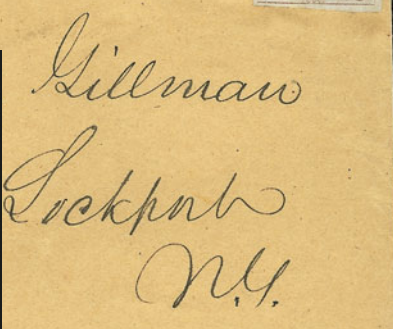 Gillman
Lockport
N.Y.